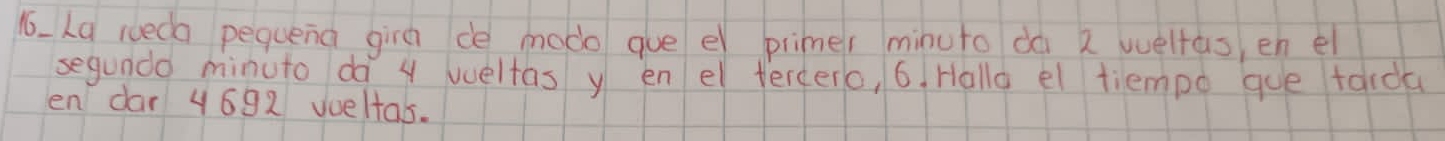 16_ La rueda pequeña gira de modo que el primer minuto da 2 vueltas, en el
segundo minuto da 4 vueltas y en el tercero, 6. Halla el tiempo que tarda
en dar 4692 vueltas.